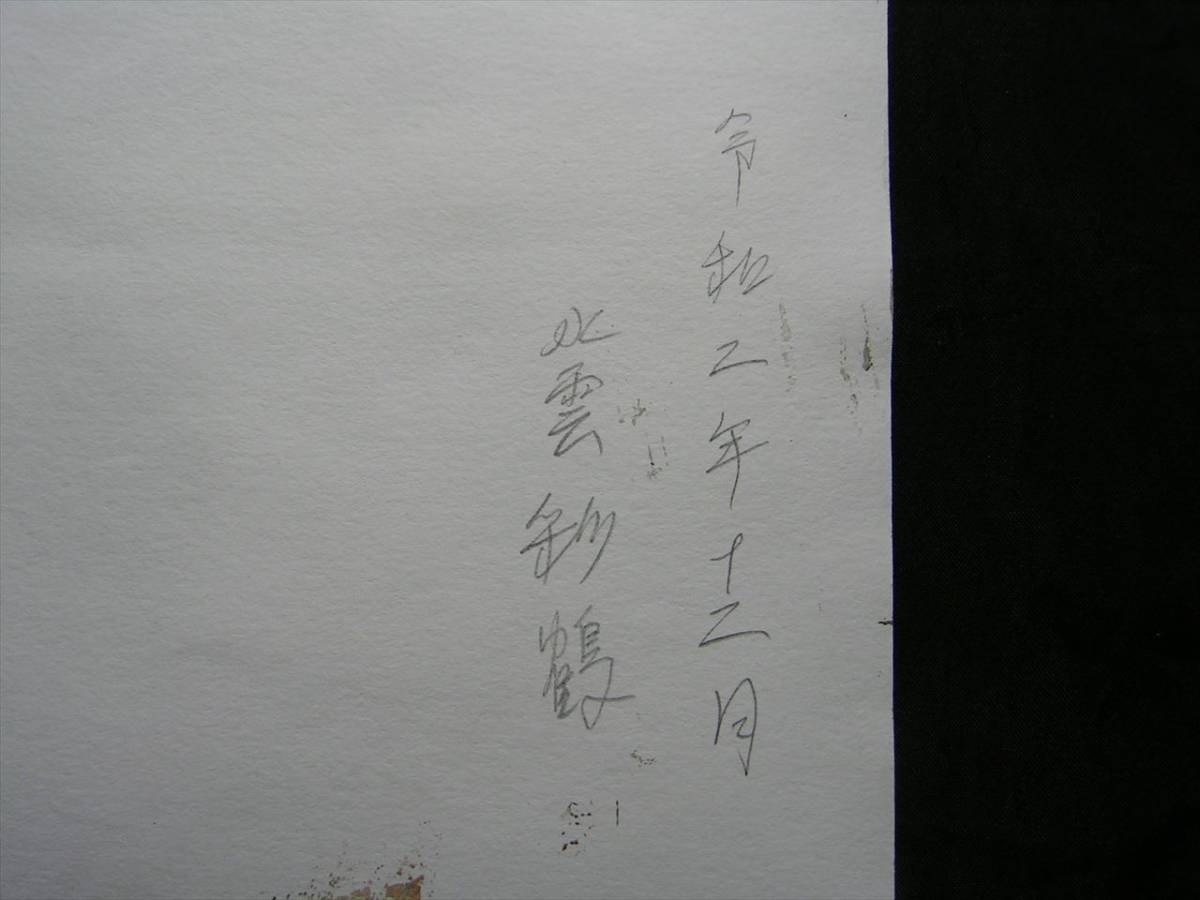 令和二年十二月
水雲彩鶴